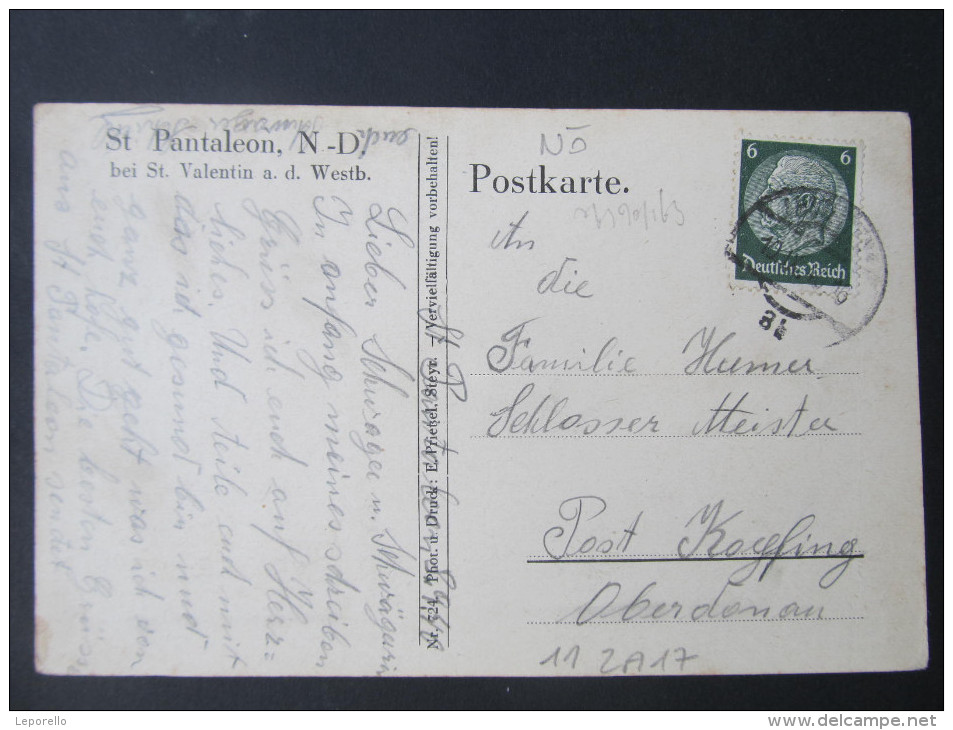 St Pantaleon, N.-D.
bei St. Valentin a. d. Westb.
Lieber Schwager u. Schwägerin
In anfang meines schreiben
Grüss ich euch auf Herz=
liches. Und teile eud mit
das ich gesund bin und
ganz gut geht was ich von
euch hofe. Die besten Grüsse
aus St Pantaleon sendet
euch
Schwager
Nr. 724. Phot. u. Druck: E. Prietzel, Steyr. — Vervielfältigung vorbehalten!
St Pantaleon
Postkarte.
NÖ
An
die
Familie Humer
Schlosser Meister
Post Kopfing
Oberdonau
11 2A17
6 6
Deutsches Reich
8b
Leporello
www.delcampe.net